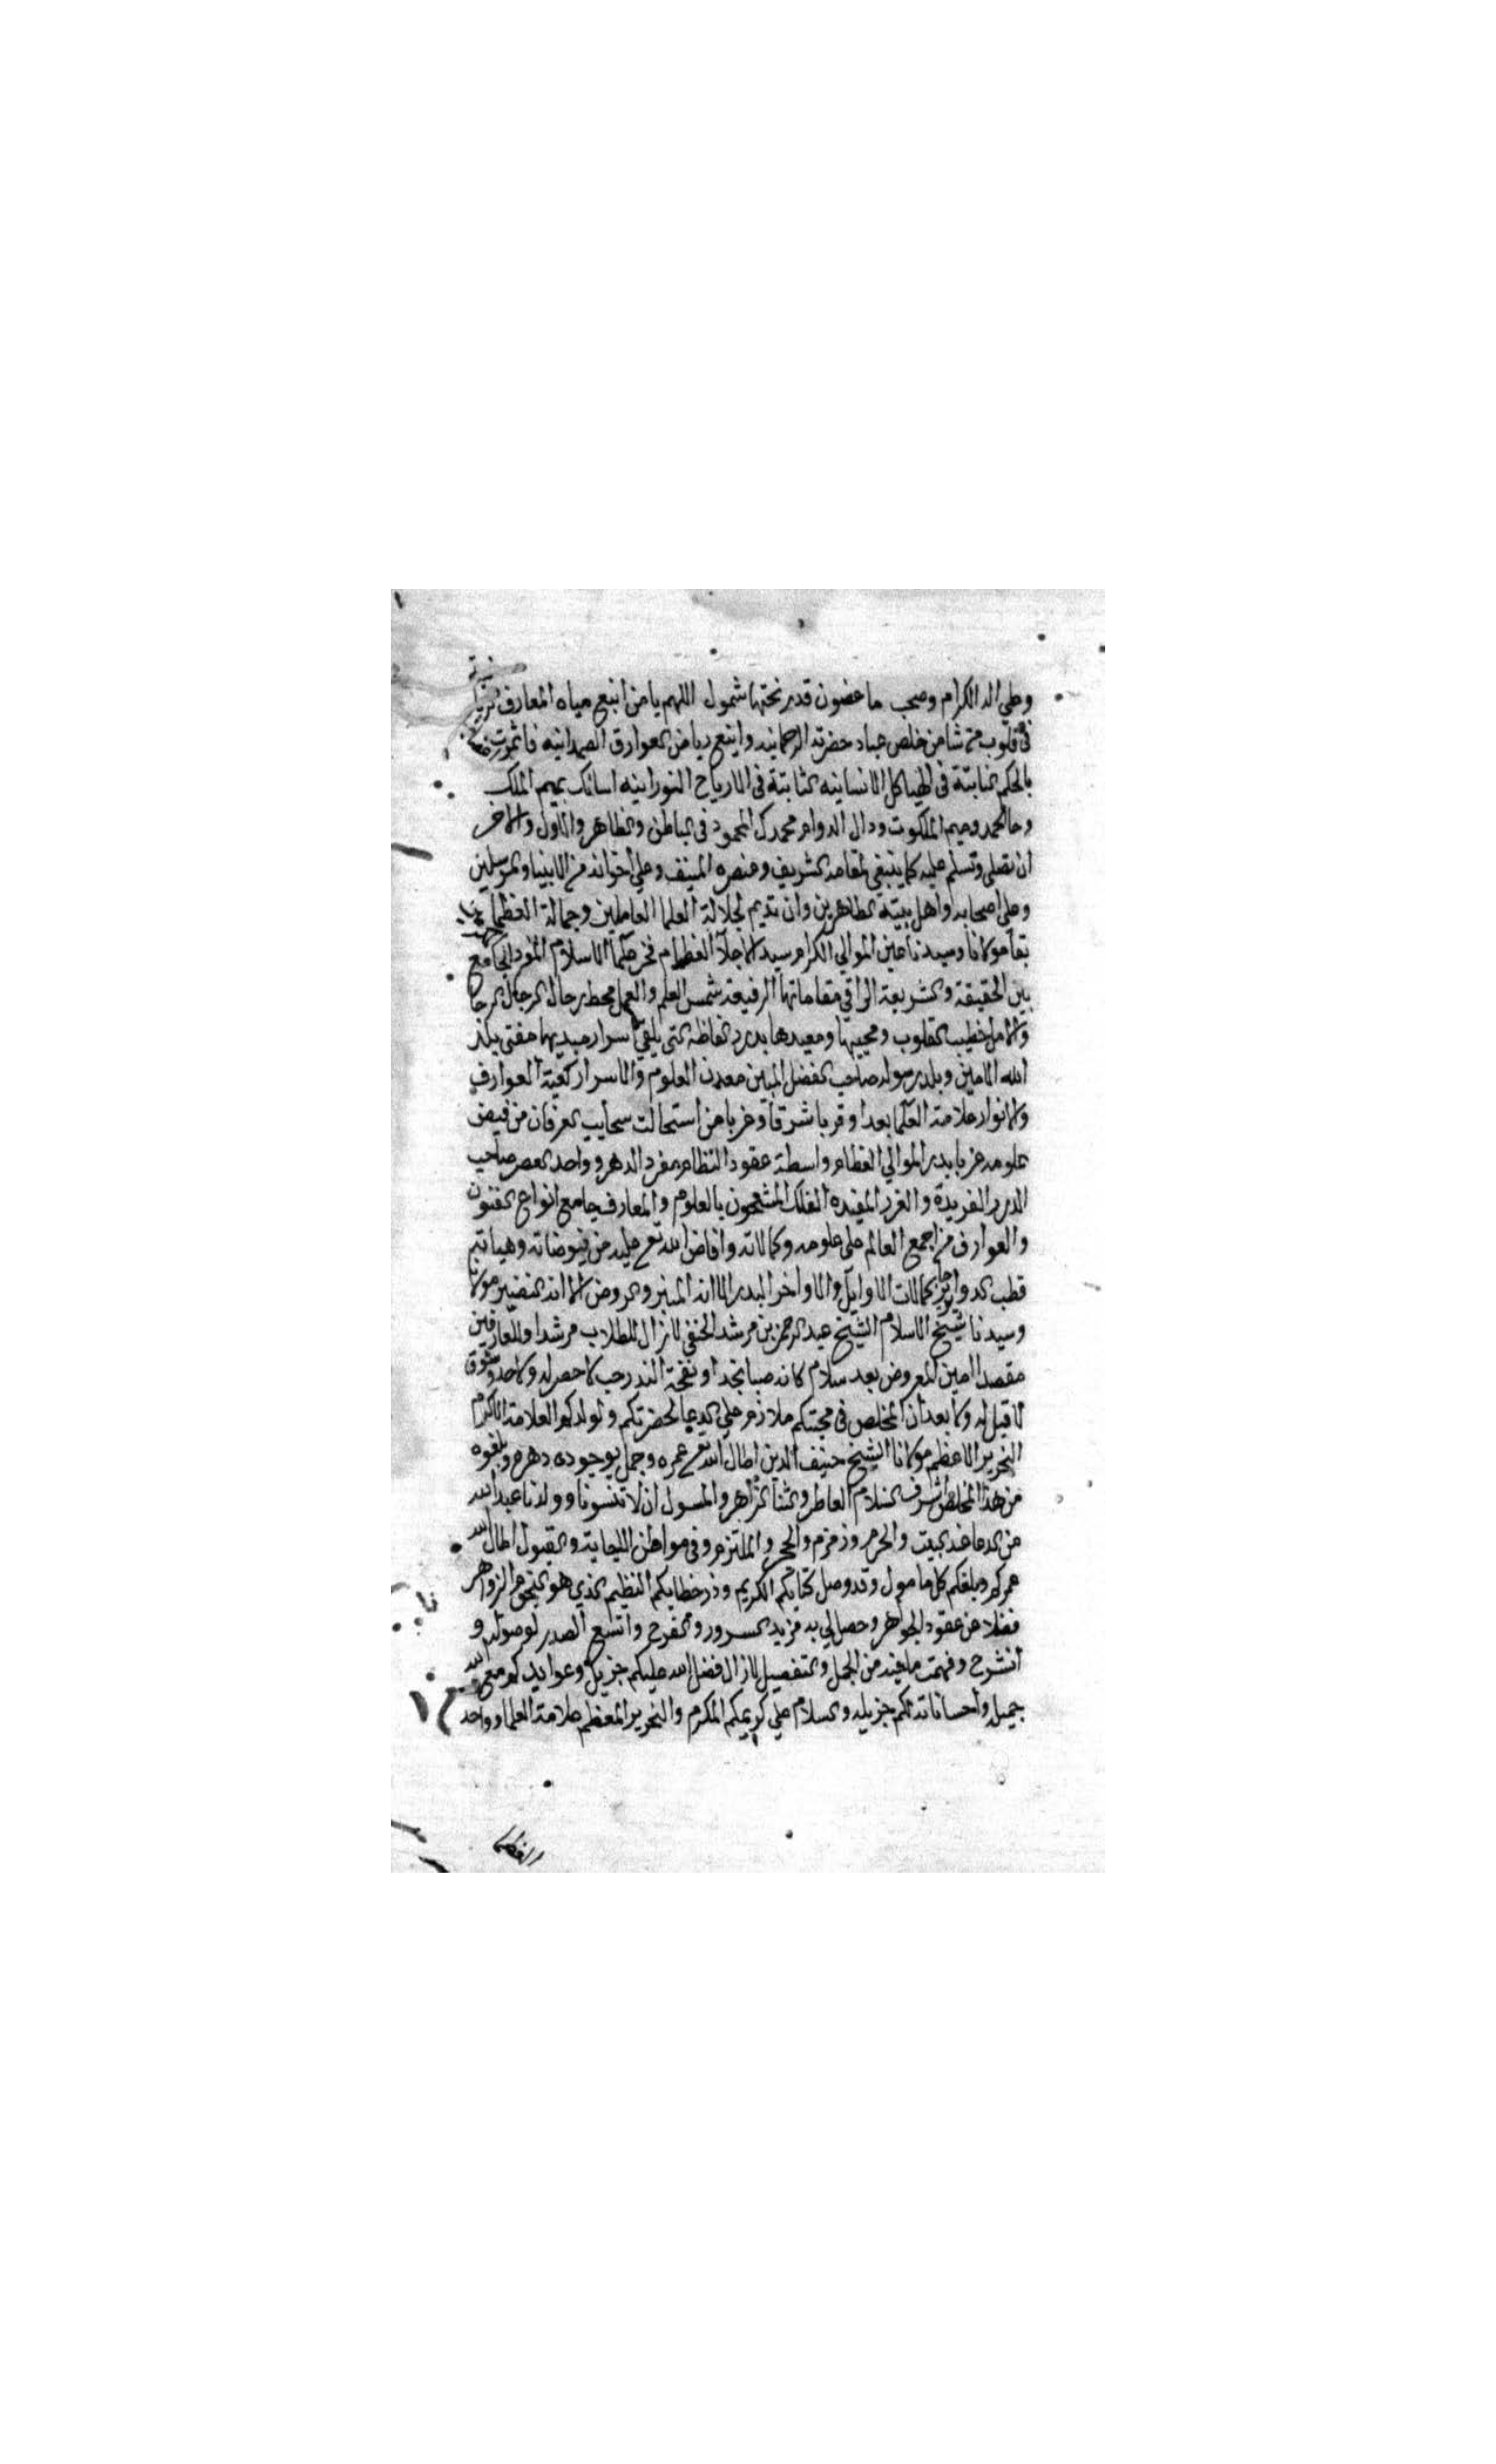 وعلى اله الكرام وصحبه ما غصون قد رنحتها شمول اللهم يا من انبع مياه المعارف
في قلوب من شا من خلص عباد حضرته الرحمانيه واينع رياض العوارف الصمدانيه فاثمرت
بالحكم النابتة في الهياكل الانسانيه الثابتة في الارياح النورانيه اسالك بميم الملك
وحا الحمد وميم الملكوت ودال الدوام محمدك المحمود في الباطن والظاهر والاول والاخر
ان تصلي وتسلم عليه كما ينبغي لمقامه الشريف وعنصره المنيف وعلى اخوانه من الانبيا والمرسلين
وعلى اصحابه واهل بيته الطاهرين وان تديم لجلالة العلما العاملين وجمالة العظما
بقا مولانا وسيدنا عين الموالي الكرام سيد الاجلا العظام فخر علما الاسلام المفرد الجامع
بين الحقيقة والشريعة الراقي مقاماتها الرفيعة شمس العلم والعمل محط رحال الرجال الرجا
والامل خطيب القلوب ومحييها ومعيدها بدرر الفاظه التي يلقي اسرار مبديها مفتي بلد
الله الامين وبلد مولد صاحب الفضل المبين معدن العلوم والاسرار كعبة العوارف
والانوار علامة العلما بعدا وقربا شرقا وغربا من استحالت سحايب العرفان من فيض
علومه غربا بدر الموالي العظام واسطة عقود النظام مفرد الدهر وواحد العصر صاحب
الدرر الفريدة والغرر المفيده الفلك المشحون بالعلوم والمعارف جامع انواع الفنون
والعوارف من اجمع العالم على علومه وكمالاته وافاض الله تع عليه من فيوضاته وهباته
قطب الدواير حايز كمالات الاوايل والاواخر البدر الا انه المنير والروض الا انه النضير مولانا
وسيدنا شيخ الاسلام الشيخ عبد الرحمن بن مرشد الحنفي لا زال للطلاب مرشدا وللعارفين
مقصدا امين المعروض بعد سلام كانه صبا نجد او نفحة الند رحب لا حصر له ولا حد وشوق
لا قبل له ولا بعد ان المخلص في محبتكم ملازم على الدعا لحضرتكم ولولدكم العلامة الاكرم
النحرير الاعظم مولانا الشيخ حنيف الدين اطال الله تع عمره وجمل بوجوده دهره وبلغوه
من هذا المخلص اشرف السلام العاطر والثنا الزاهر والمسول ان لا تنسونا وولدنا عبد الله
من الدعا عند البيت والحرم وزمزم والحجر والملتزم وفي مواطن الاجابة والقبول اطال الله
عمركم وبلغكم كل مامول وقد وصل كتابكم الكريم ودر خطابكم النظيم الذي هو النجوم الزواهر
فضلا عن عقود الجواهر وحصل لي به مزيد السرور والفرح واتسع الصدر لوصوله و
انشرح وفهمت ما فيه من الجمل والتفصيل لا زال فضل الله عليكم جزيل وعوايدكم مع الله
جميله واحساناته لكم جزيله والسلام على كريمكم المكرم والنحرير المعظم علامة العلما وواحد
الفضلا